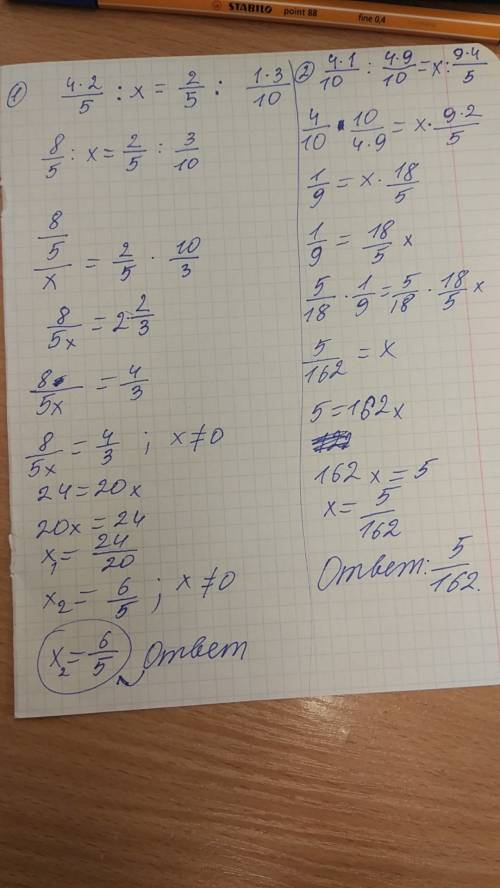 STABILO point 88 fine 0,4
① 4·2/5 : x = 2/5 : 1·3/10
8/5 : x = 2/5 : 3/10
8/5/x = 2/5 · 10/3
8/5x = 2·2/3
8/5x = 4/3
8/5x = 4/3 ; x ≠ 0
24 = 20x
20x = 24
x₁ = 24/20
x₂ = 6/5 ; x ≠ 0
x₂ = 6/5 Ответ
② 4·1/10 : 4·9/10 = x : 9·4/5
4/10 · 10/4·9 = x · 9·2/5
1/9 = x · 18/5
1/9 = 18/5 x
5/18 · 1/9 = 5/18 · 18/5 x
5/162 = x
5 = 162x
162x = 5
x = 5/162
Ответ: 5/162.